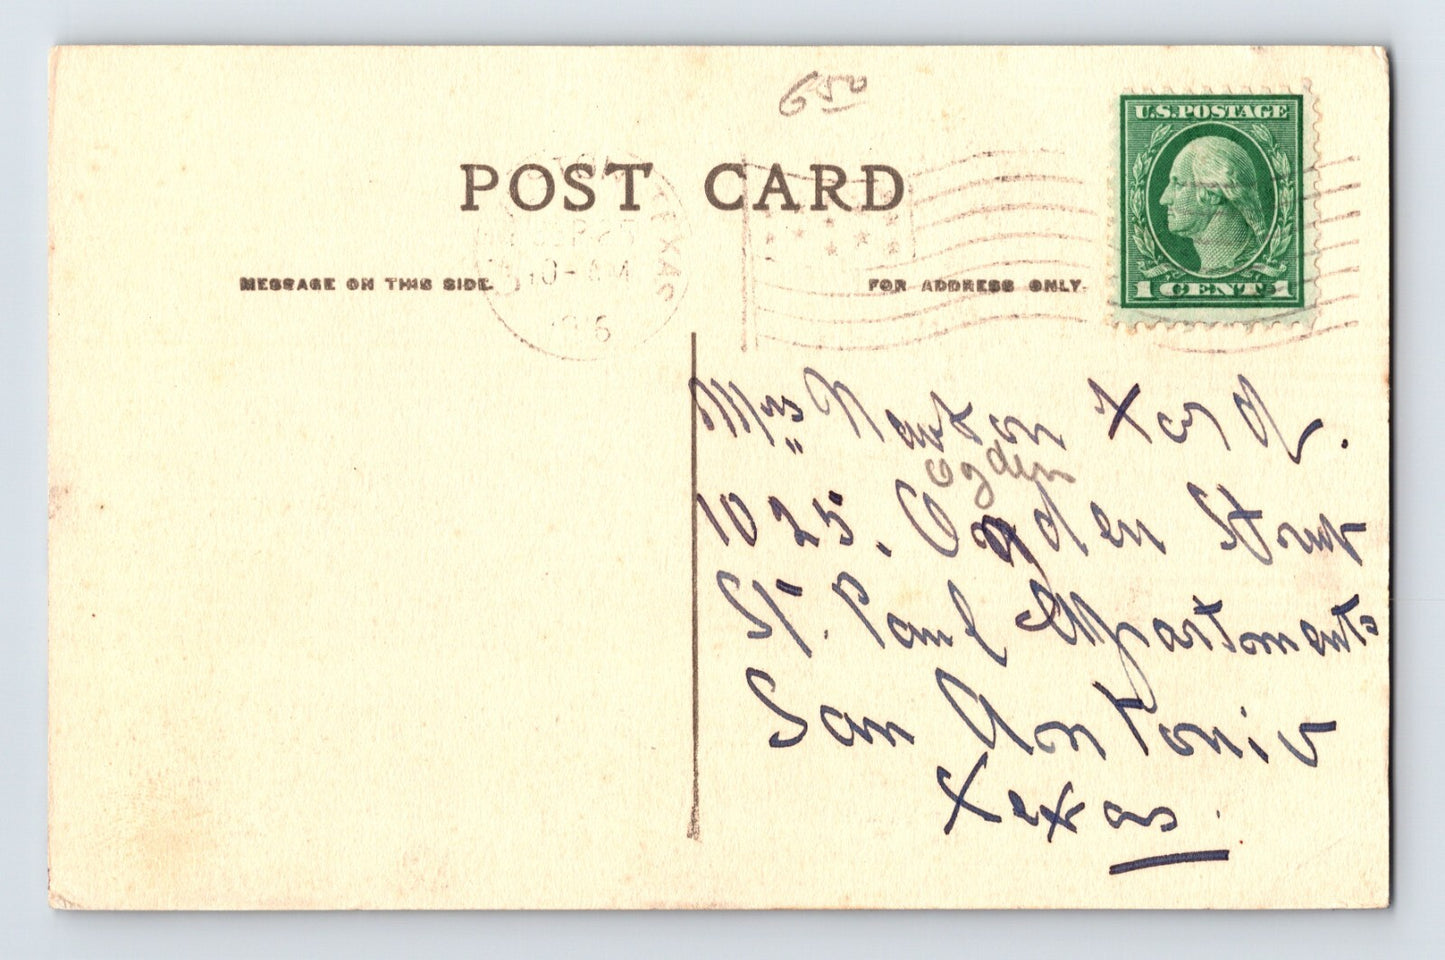 6 50
U.S. POSTAGE
POST CARD
TEXAS
SEP 25
10- AM
MESSAGE ON THIS SIDE.
FOR ADDRESS ONLY.
1 CENT 1
Mrs Newton
Ogden
1025. Ogden Street
St. Paul Apartments
San Antonio
Texas.